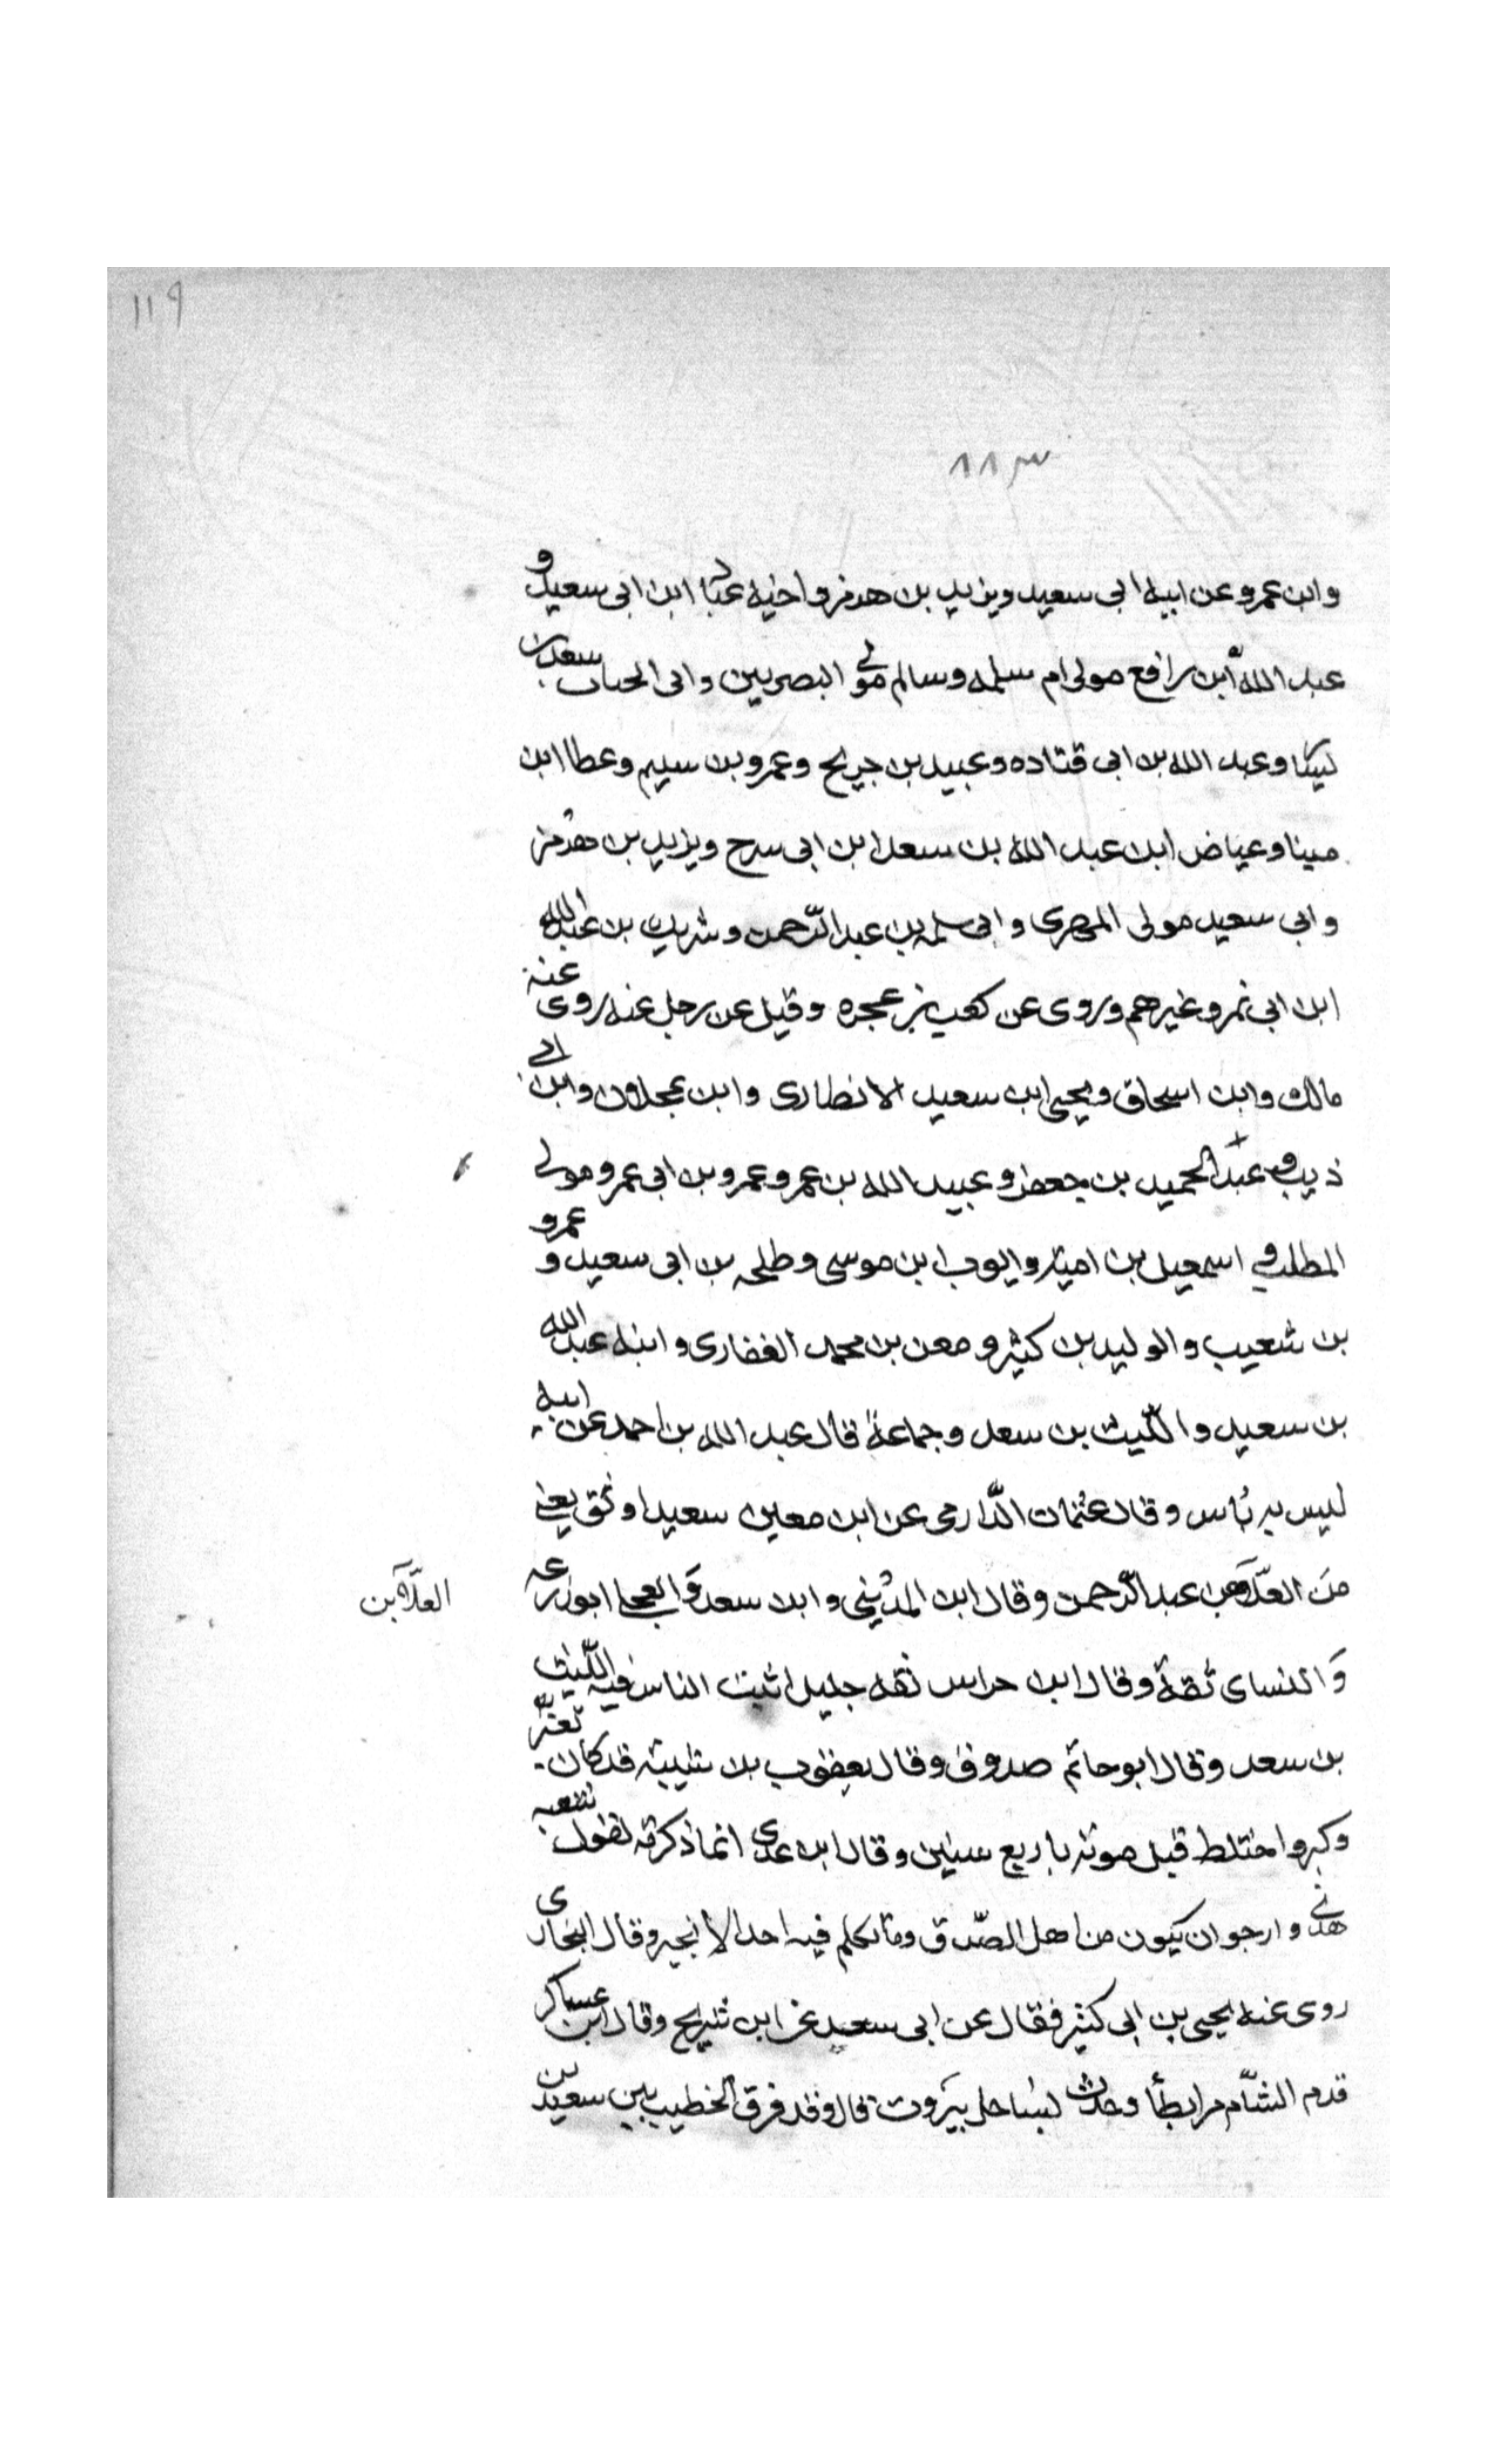 ١١٩
٨٨٣
وابن عمرو عن ابيه ابى سعيد ويزيد بن هرمز واخيه عباد ابن ابى سعيد و
عبد الله ابن رافع مولى ام سلمه وسالم مولى البصريين وابى الحباب سعد بن
ليسا وعبد الله بن ابى قتاده وعبيد بن جريج وعمرو بن سليم وعطا ابن
مينا وعياض ابن عبد الله بن سعد ابن ابى سرح ويزيد بن هرمز
وابى سعيد مولى المهرى وابى سلمه بن عبد الرّحمن وشريك بن عبد الله
ابن ابى نمر وغيرهم وروى عن كعب بن عجره وقيل عن رجل عنه روى عنه
مالك وابن اسحاق ويحيى ابن سعيد الانصارى وابن عجلان وابن ابى
ذيب و عبد الحميد بن جعفر وعبيد الله بن عمر وعمرو بن ابى عمرو مولى
المطلب و اسمعيل بن اميّه وايوب ابن موسى وطلحه بن ابى سعيد و عمرو
بن شعيب والوليد بن كثير ومعن بن محمد الغفارى وابنه عبد الله
بن سعيد والليث بن سعد وجماعة قال عبد الله بن احمد عن ابيه
ليس به باس وقال عثمان الدّارمى عن ابن معين سعيد اوثق يعنى
من العلّا بن عبد الرّحمن وقال ابن المدينى وابن سعد والعجلى ابو زرعه
العلّا بن
والنساى ثقة وقال ابن خراش ثقه جليل اثبت الناس فيه الليث
بن سعد وقال ابو حاتم صدوق وقال يعقوب بن شيبه قد كان تغيّر
وكبر واختلط قبل موته باربع سنين وقال ابن عدى انما ذكرته لقول شعبه
هذا وارجو ان يكون من اهل الصّدق وما تكلم فيه احد الا بخير وقال البخارى
روى عنه يحيى بن ابى كثير فقال عن ابى سعيد عن ابن شريح وقال ابن عساكر
قدم الشّام مرابطاً وحدث بساحل بيروت قال وقد فرق الخطيب بين سعيد بن